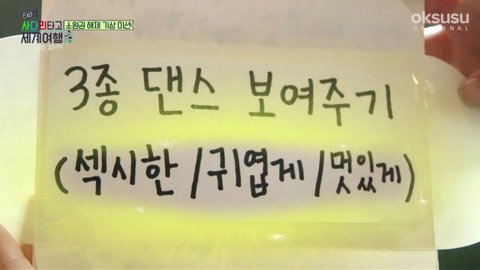 EXO의 사다리타고 세계여행
소원권 해제 기상 미션!
oksusu
ORIGINAL
3종 댄스 보여주기
(섹시한/귀엽게/멋있게)